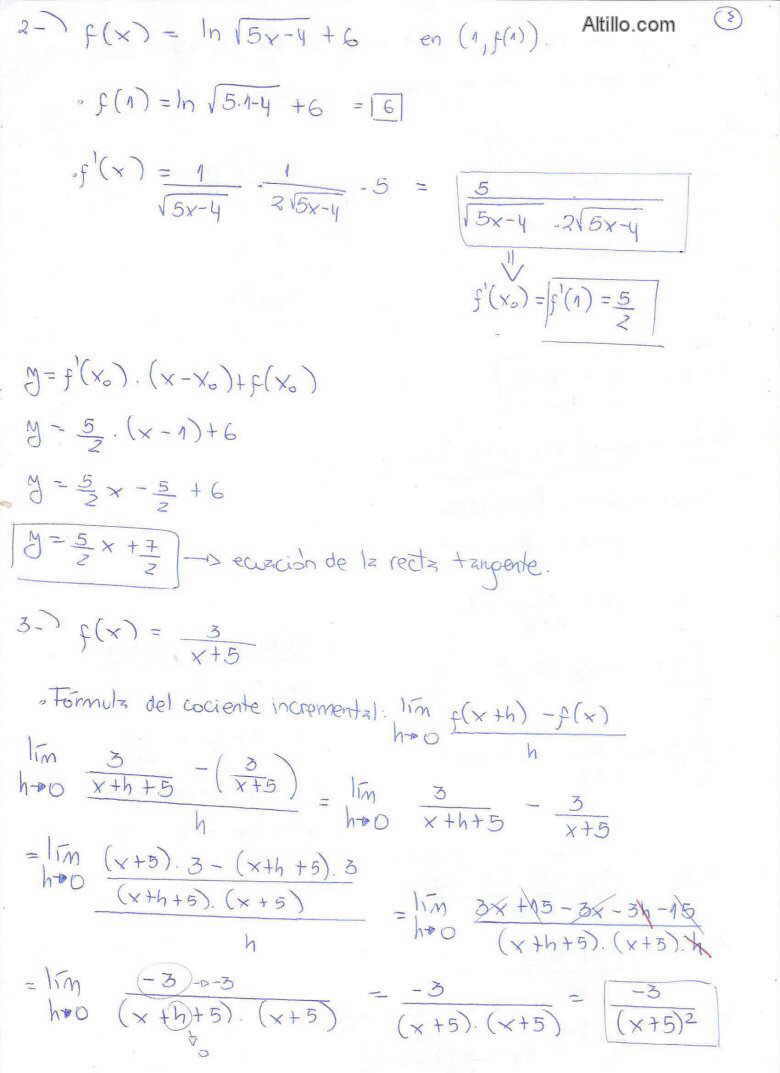 Altillo.com
4
2-) f(x) = ln √(5x-4) + 6 en (1, f(1)).
· f(1) = ln √(5.1-4) + 6 = 6
· f'(x) = 1/√(5x-4) · 1/(2√(5x-4)) · 5 = 5/(√(5x-4) · 2√(5x-4))
f'(x₀) = f'(1) = 5/2
y = f'(x₀) · (x-x₀) + f(x₀)
y = 5/2 · (x-1) + 6
y = 5/2 x - 5/2 + 6
y = 5/2 x + 7/2 → ecuación de la recta tangente.
3-) f(x) = 3/(x+5)
· Fórmula del cociente incremental: lím h→0 (f(x+h) - f(x))/h
lím h→0 (3/(x+h+5) - (3/(x+5)))/h = lím h→0 3/(x+h+5) - 3/(x+5)
= lím h→0 (((x+5).3 - (x+h+5).3)/((x+h+5).(x+5)))/h = lím h→0 (3x+15-3x-3h-15)/((x+h+5).(x+5).h)
= lím h→0 -3→-3/((x+h+5).(x+5)) = -3/((x+5).(x+5)) = -3/(x+5)²
0